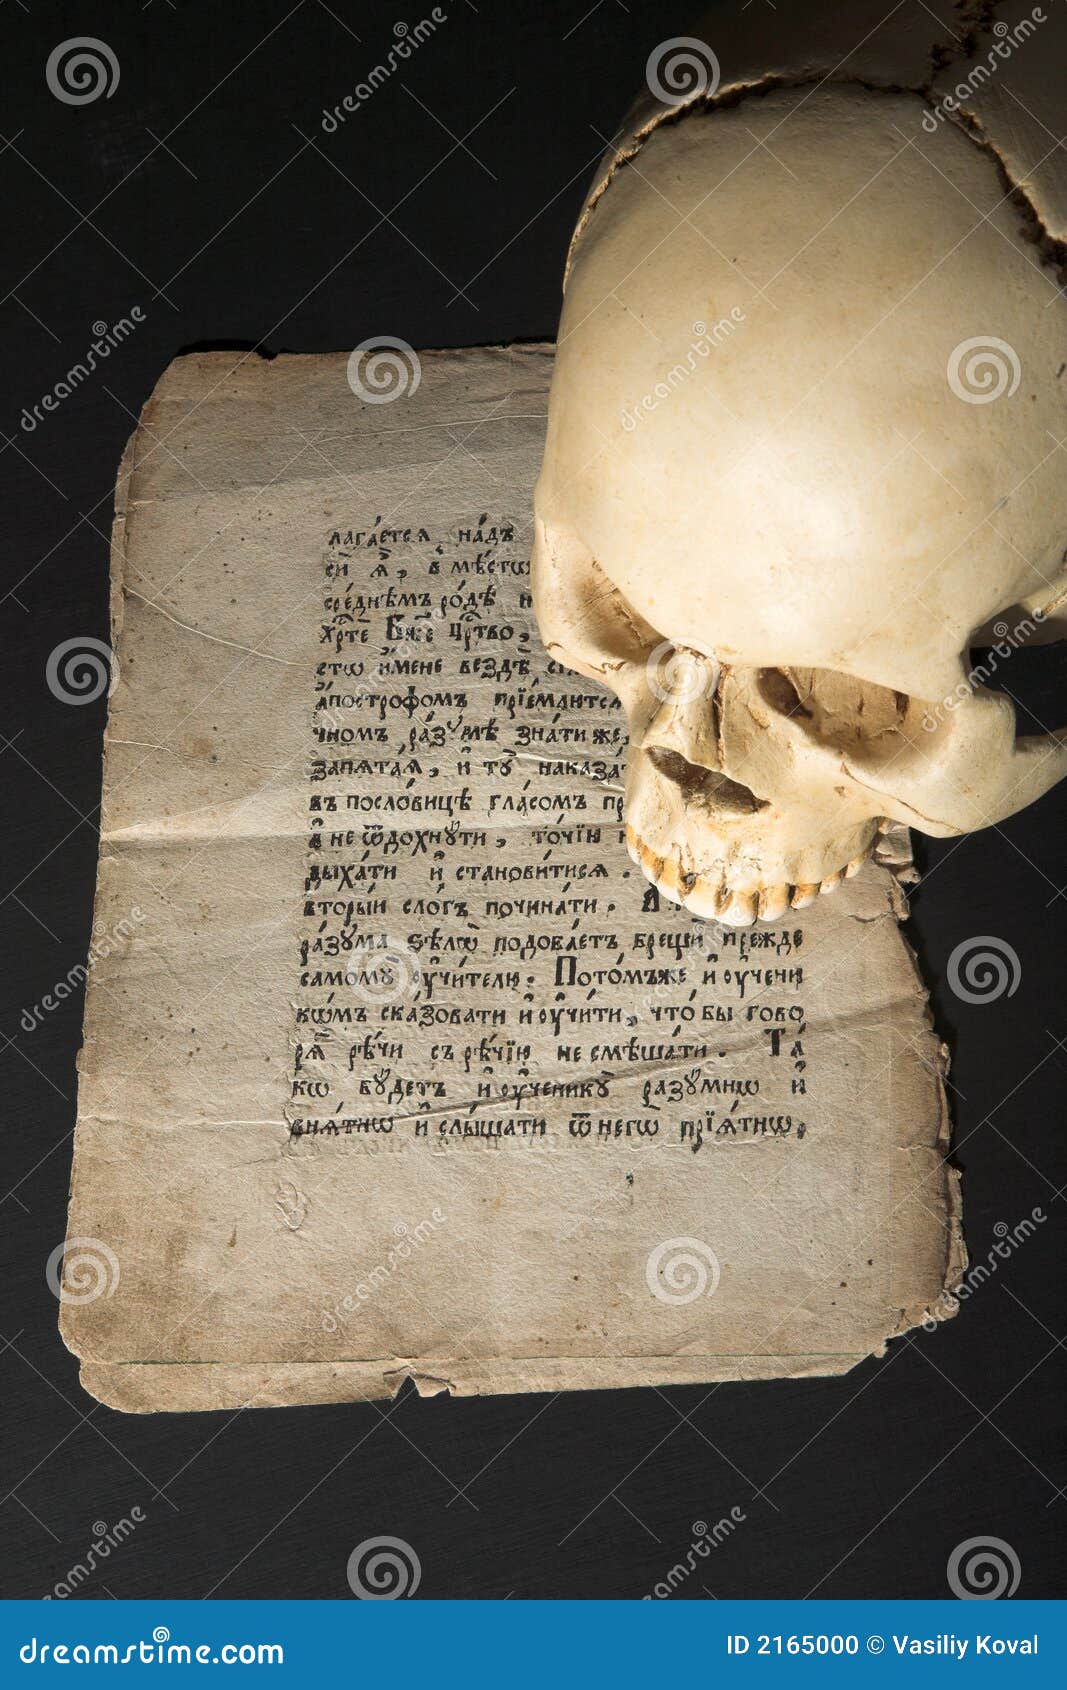 лага́етсѧ на́дъ
сі́й ѧ҃, в мѣ́стѡ
сре́днѣмъ ро́дѣ н
Хрⷭ҇те́ Бж҃е Црⷭ҇тво,
стѡ и҆́мене вездѣ̀
а҆постро́фомъ прїе́млитсѧ
чномъ ра́зꙋмѣ зна́ти же,
запѧта́ѧ, и҆ тꙋ̀ наказа́
въ посло́вицѣ гла́сомъ пр
а҆ не ѿдохнꙋ́ти, то́чїю
дыха́ти и҆ станови́тисѧ.
вторы́й сло́гъ почина́ти. И҆
ра́зꙋма ѕѣлѡ̀ подоба́етъ брещѝ пре́жде
самомꙋ̀ ᲂу҆чи́телю. Пото́мъже и҆ ᲂу҆чени
кѡ́мъ ска́зовати и҆ ᲂу҆чи́ти, что́ бы гово
рѧ̀ рѣ́чи съ рѣ́чїю не смѣша́ти. Та́
кѡ бꙋ́детъ и҆ ᲂу҆ченикꙋ̀ разꙋ́мнѡ и҆
внѧ́тнѡ и҆ слы́шати ѿ негѡ̀ прїѧ́тнѡ.
dreamstime.com
ID 2165000 © Vasiliy Koval